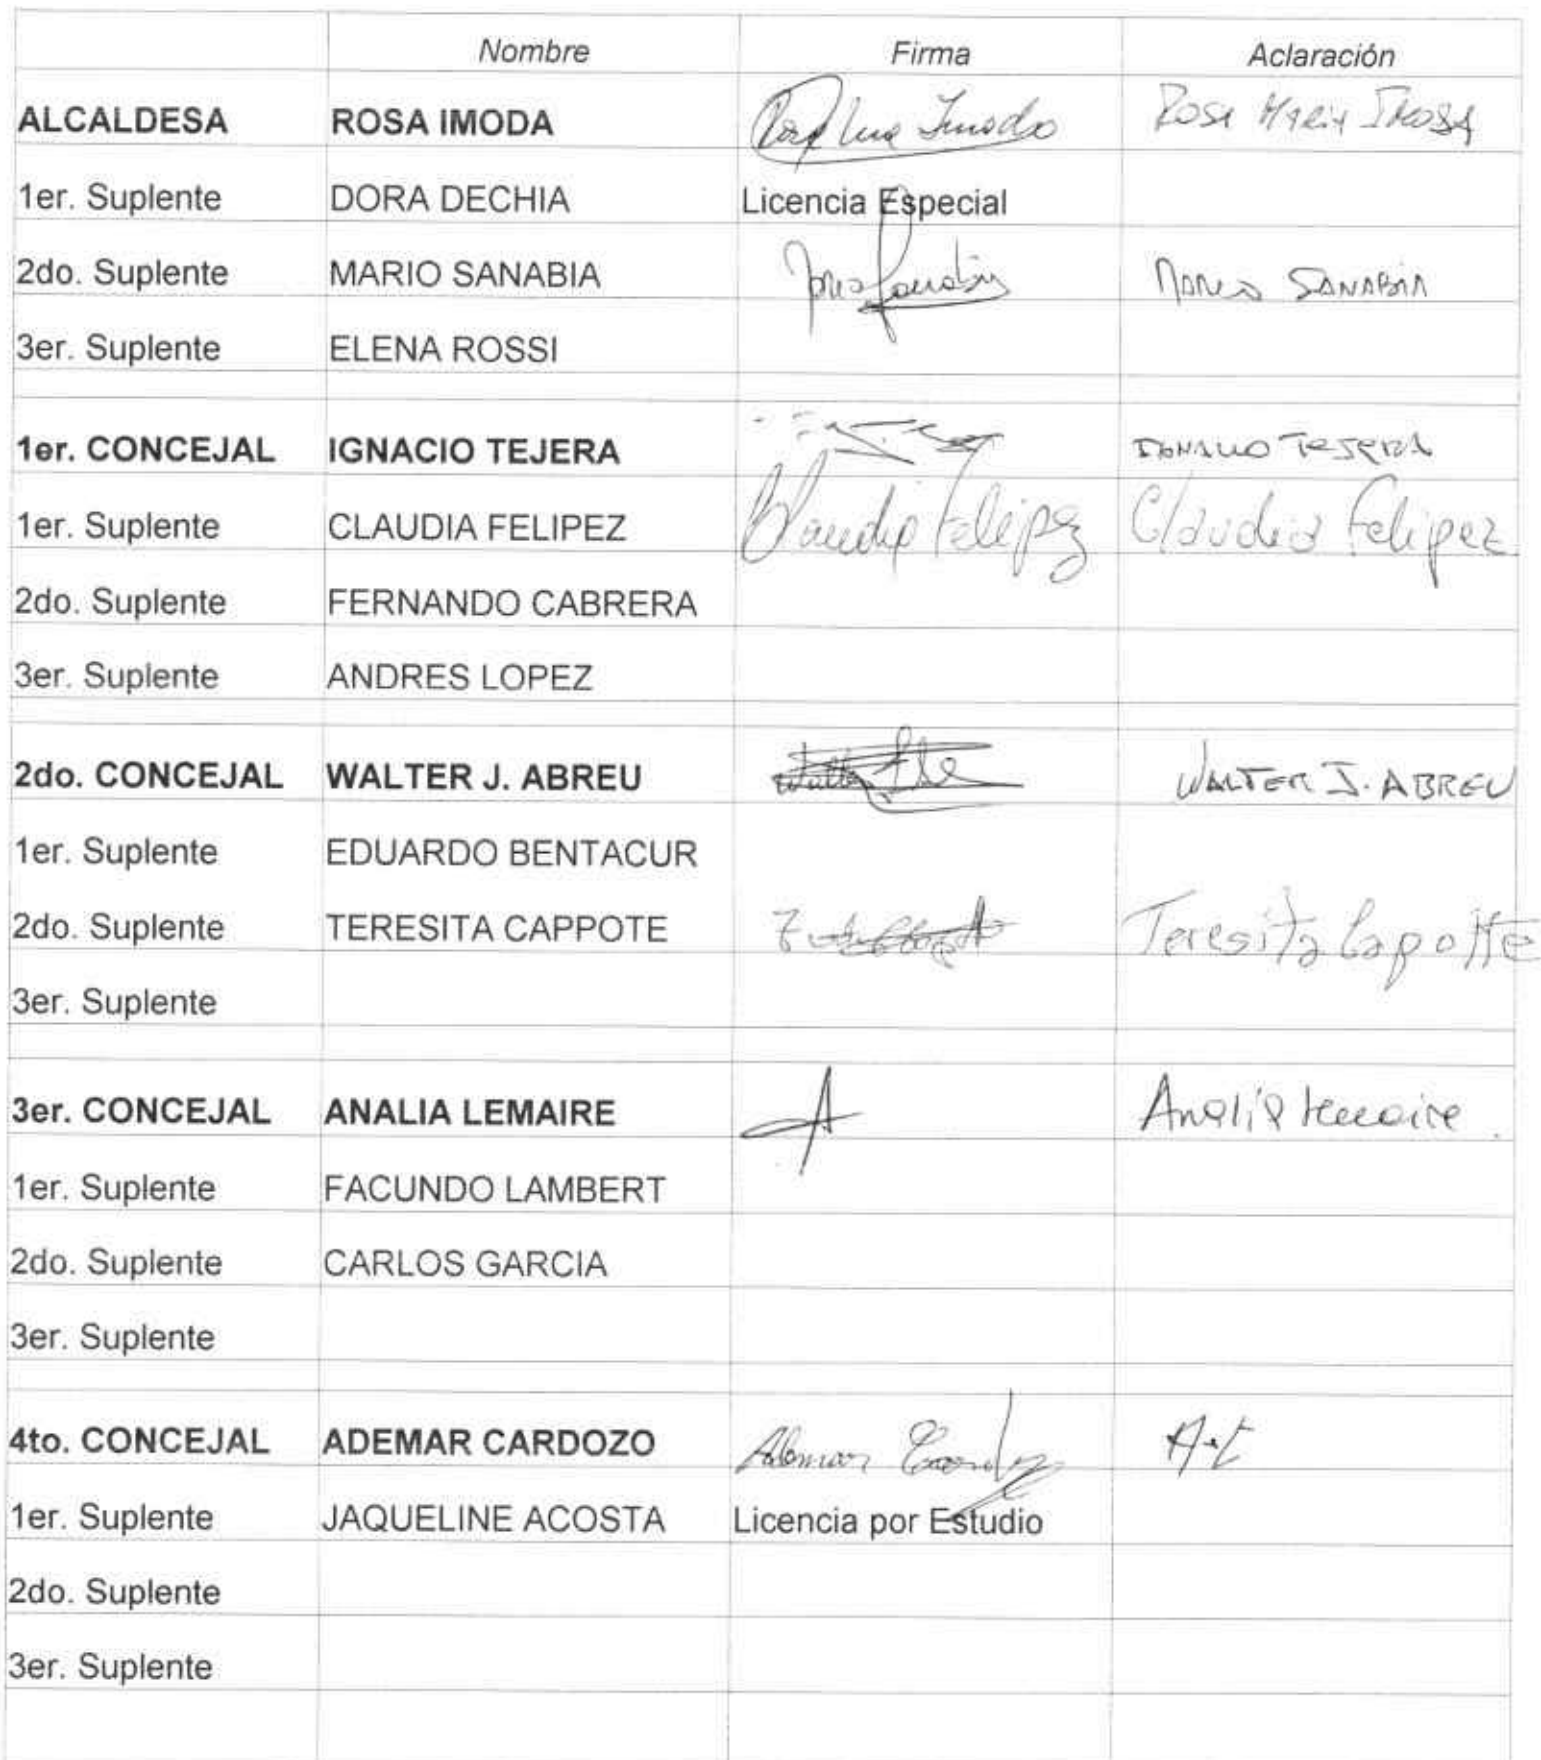 Nombre Firma Aclaración
ALCALDESA ROSA IMODA Rosa Maria Imoda
1er. Suplente DORA DECHIA Licencia Especial
2do. Suplente MARIO SANABIA MARIO SANABIA
3er. Suplente ELENA ROSSI
1er. CONCEJAL IGNACIO TEJERA IGNACIO TEJERA
1er. Suplente CLAUDIA FELIPEZ Claudia Felipez Claudia Felipez
2do. Suplente FERNANDO CABRERA
3er. Suplente ANDRES LOPEZ
2do. CONCEJAL WALTER J. ABREU WALTER J. ABREU
1er. Suplente EDUARDO BENTACUR
2do. Suplente TERESITA CAPPOTE Teresita Capotte
3er. Suplente
3er. CONCEJAL ANALIA LEMAIRE Analia Lemaire
1er. Suplente FACUNDO LAMBERT
2do. Suplente CARLOS GARCIA
3er. Suplente
4to. CONCEJAL ADEMAR CARDOZO Ademar Cardozo
1er. Suplente JAQUELINE ACOSTA Licencia por Estudio
2do. Suplente
3er. Suplente